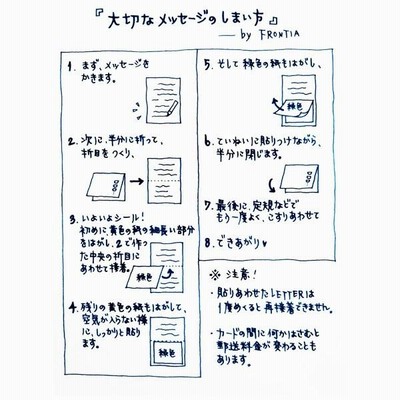 『大切なメッセージのしまい方』
— by FRONTIA
1. まず、メッセージを
かきます。
2. 次に、半分に折って、
折目をつくり、
3. いよいよシール!
初めに、黄色の紙の細長い部分
をはがし、2で作っ
た中央の折目に
あわせて接着。
緑色
4. 残りの黄色の紙もはがして、
空気が入らない様
に、しっかりと貼り
ます。
緑色
5. そして緑色の紙もはがし、
緑色
6. ていねいに貼りつけながら、
半分に閉じます。
7. 最後に、定規などで
もう一度よく、こすりあわせて
8. できあがり♥
※ 注意!
・貼りあわせたLETTERは
1度めくると再接着できません。
・カードの間に何かはさむと
郵送料金が変わることも
あります。